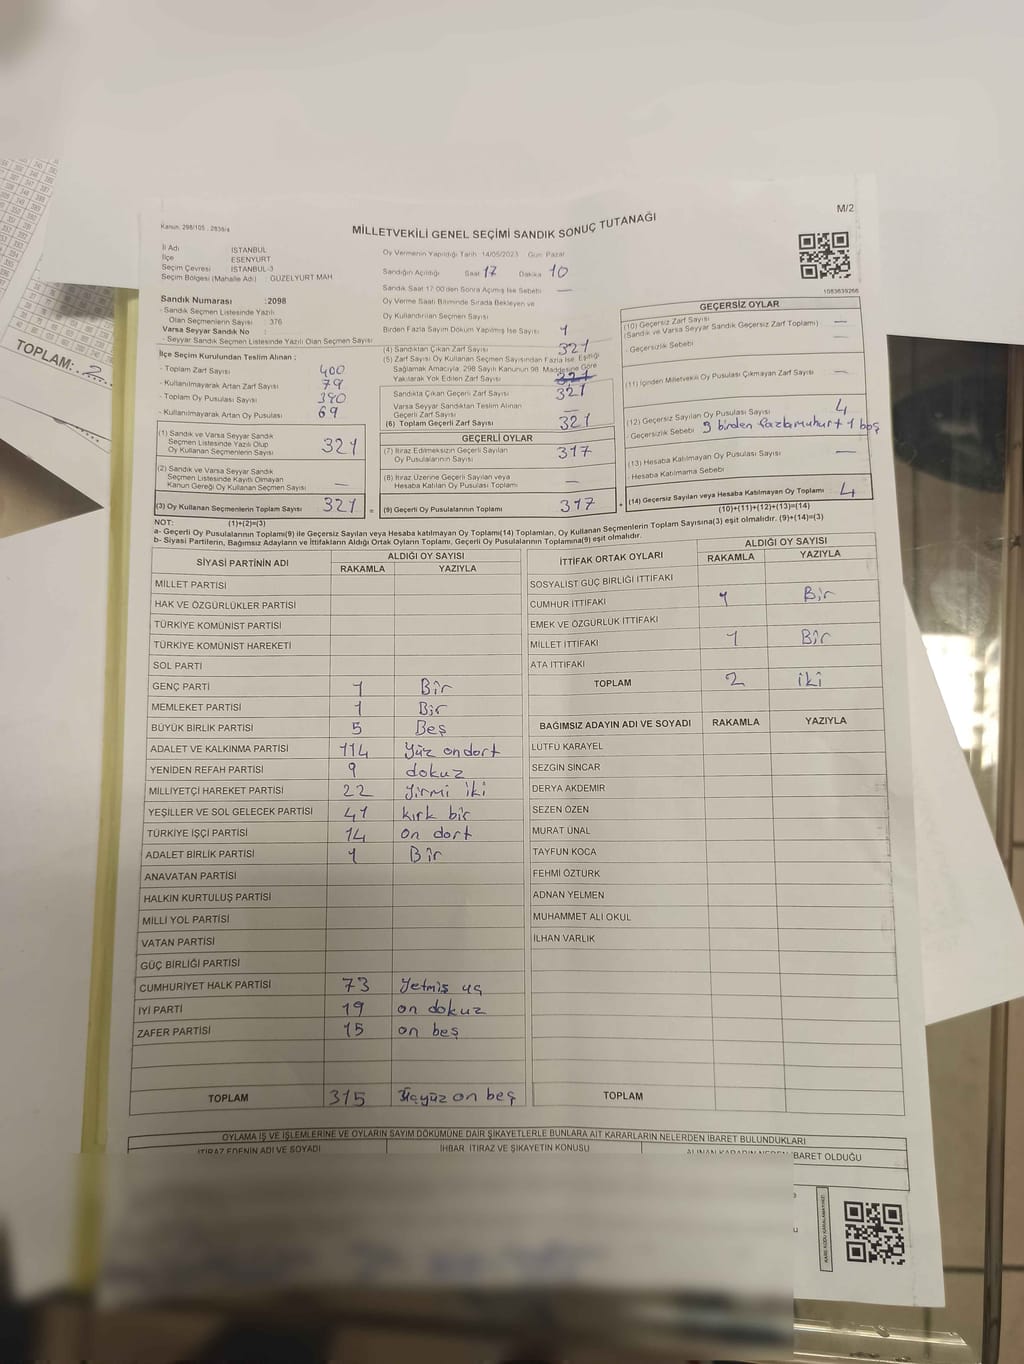 TOPLAM: 2
Kanun: 298/105 , 2839/4
MİLLETVEKİLİ GENEL SEÇİMİ SANDIK SONUÇ TUTANAĞI
M/2
İl Adı İSTANBUL
İlçe ESENYURT
Seçim Çevresi İSTANBUL-3
Seçim Bölgesi (Mahalle Adı) : GÜZELYURT MAH.
Sandık Numarası :2098
- Sandık Seçmen Listesinde Yazılı
Olan Seçmenlerin Sayısı : 376
Varsa Seyyar Sandık No :
- Seyyar Sandık Seçmen Listesinde Yazılı Olan Seçmen Sayısı
İlçe Seçim Kurulundan Teslim Alınan ;
- Toplam Zarf Sayısı 400
- Kullanılmayarak Artan Zarf Sayısı 79
- Toplam Oy Pusulası Sayısı 390
- Kullanılmayarak Artan Oy Pusulası 69
(1) Sandık ve Varsa Seyyar Sandık
Seçmen Listesinde Yazılı Olup
Oy Kullanan Seçmenlerin Sayısı 321
(2) Sandık ve Varsa Seyyar Sandık
Seçmen Listesinde Kayıtlı Olmayan
Kanun Gereği Oy Kullanan Seçmen Sayısı —
(3) Oy Kullanan Seçmenlerin Toplam Sayısı 321
(1)+(2)=(3)
Oy Vermenin Yapıldığı Tarih 14/05/2023 Gün Pazar
Sandığın Açıldığı Saat 17 Dakika 10
Sandık Saat 17:00'den Sonra Açılmış İse Sebebi —
Oy Verme Saati Bitiminde Sırada Bekleyen ve
Oy Kullandırılan Seçmen Sayısı
Birden Fazla Sayım Döküm Yapılmış İse Sayısı 1
(4) Sandıktan Çıkan Zarf Sayısı 321
(5) Zarf Sayısı Oy Kullanan Seçmen Sayısından Fazla İse Eşitliği
Sağlamak Amacıyla, 298 Sayılı Kanunun 98. Maddesine Göre
Yakılarak Yok Edilen Zarf Sayısı 321
Sandıkta Çıkan Geçerli Zarf Sayısı 321
Varsa Seyyar Sandıktan Teslim Alınan
Geçerli Zarf Sayısı —
(6) Toplam Geçerli Zarf Sayısı 321
GEÇERLİ OYLAR
(7) İtiraz Edilmeksizin Geçerli Sayılan
Oy Pusulalarının Sayısı 317
(8) İtiraz Üzerine Geçerli Sayılan veya
Hesaba Katılan Oy Pusulası Toplamı —
= (9) Geçerli Oy Pusulalarının Toplamı 317
1083839266
GEÇERSİZ OYLAR
(10) Geçersiz Zarf Sayısı
(Sandık ve Varsa Seyyar Sandık Geçersiz Zarf Toplamı) —
- Geçersizlik Sebebi —
(11) İçinden Milletvekili Oy Pusulası Çıkmayan Zarf Sayısı —
(12) Geçersiz Sayılan Oy Pusulası Sayısı 4
- Geçersizlik Sebebi 3 birden fazla mühürt 1 boş
(13) Hesaba Katılmayan Oy Pusulası Sayısı —
Hesaba Katılmama Sebebi
+ (14) Geçersiz Sayılan veya Hesaba Katılmayan Oy Toplamı 4
(10)+(11)+(12)+(13)=(14)
NOT:
a- Geçerli Oy Pusulalarının Toplamı(9) ile Geçersiz Sayılan veya Hesaba katılmayan Oy Toplamı(14) Toplamları, Oy Kullanan Seçmenlerin Toplam Sayısına(3) eşit olmalıdır. (9)+(14)=(3)
b- Siyasi Partilerin, Bağımsız Adayların ve İttifakların Aldığı Ortak Oyların Toplamı, Geçerli Oy Pusulalarının Toplamına(9) eşit olmalıdır.
SİYASİ PARTİNİN ADI ALDIĞI OY SAYISI
RAKAMLA YAZIYLA
MİLLET PARTİSİ
HAK VE ÖZGÜRLÜKLER PARTİSİ
TÜRKİYE KOMÜNİST PARTİSİ
TÜRKİYE KOMÜNİST HAREKETİ
SOL PARTİ
GENÇ PARTİ 1 Bir
MEMLEKET PARTİSİ 1 Bir
BÜYÜK BİRLİK PARTİSİ 5 Beş
ADALET VE KALKINMA PARTİSİ 114 Yüz ondort
YENİDEN REFAH PARTİSİ 9 dokuz
MİLLİYETÇİ HAREKET PARTİSİ 22 Yirmi iki
YEŞİLLER VE SOL GELECEK PARTİSİ 41 kırk bir
TÜRKİYE İŞÇİ PARTİSİ 14 on dort
ADALET BİRLİK PARTİSİ 1 Bir
ANAVATAN PARTİSİ
HALKIN KURTULUŞ PARTİSİ
MİLLİ YOL PARTİSİ
VATAN PARTİSİ
GÜÇ BİRLİĞİ PARTİSİ
CUMHURİYET HALK PARTİSİ 73 Yetmiş üç
İYİ PARTİ 19 on dokuz
ZAFER PARTİSİ 15 on beş
TOPLAM 315 Üçyüz on beş
İTTİFAK ORTAK OYLARI ALDIĞI OY SAYISI
RAKAMLA YAZIYLA
SOSYALİST GÜÇ BİRLİĞİ İTTİFAKI
CUMHUR İTTİFAKI 1 Bir
EMEK VE ÖZGÜRLÜK İTTİFAKI
MİLLET İTTİFAKI 1 Bir
ATA İTTİFAKI
TOPLAM 2 iki
BAĞIMSIZ ADAYIN ADI VE SOYADI RAKAMLA YAZIYLA
LÜTFÜ KARAYEL
SEZGİN SİNCAR
DERYA AKDEMİR
SEZEN ÖZEN
MURAT ÜNAL
TAYFUN KOCA
FEHMİ ÖZTÜRK
ADNAN YELMEN
MUHAMMET ALİ OKUL
İLHAN VARLIK
TOPLAM
OYLAMA İŞ VE İŞLEMLERİNE VE OYLARIN SAYIM DÖKÜMÜNE DAİR ŞİKAYETLERLE BUNLARA AİT KARARLARIN NELERDEN İBARET BULUNDUKLARI
İTİRAZ EDENİN ADI VE SOYADI İHBAR İTİRAZ VE ŞİKAYETİN KONUSU ALINAN KARARIN NEDEN İBARET OLDUĞU
KARE KODU KARALAMAYINIZ!